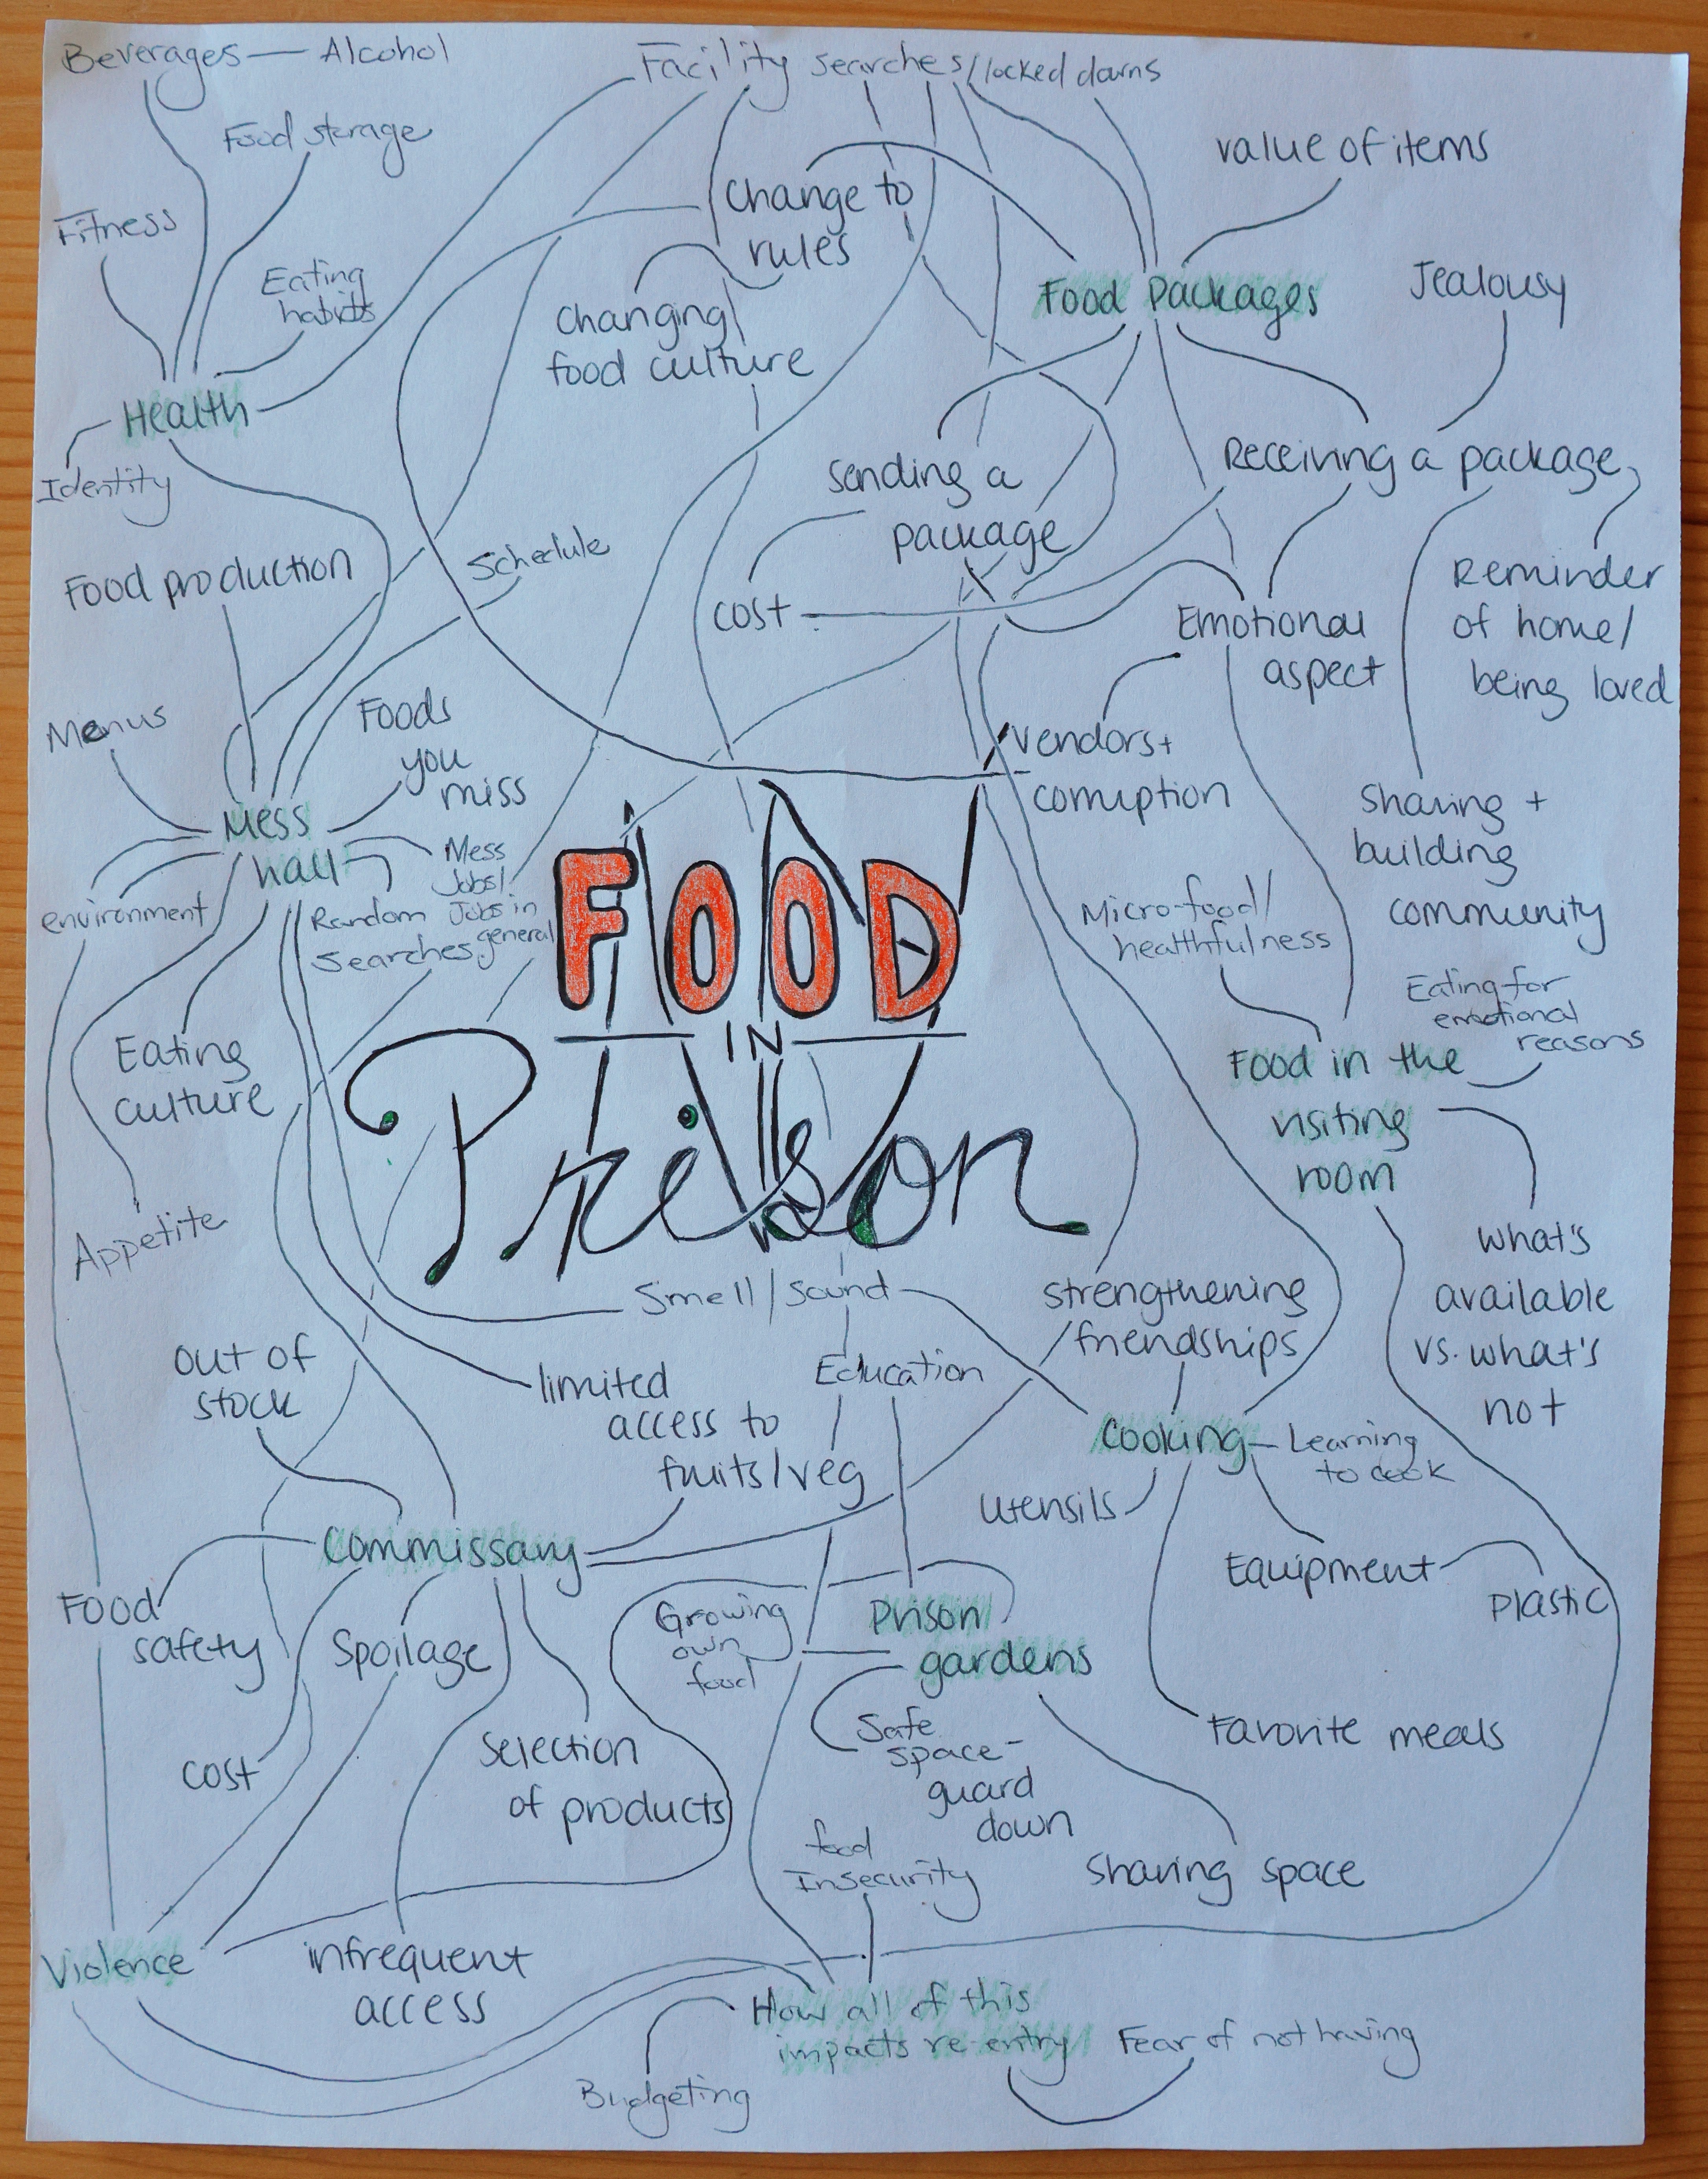 Beverages — Alcohol
Facility searches/locked downs
Food storage
value of items
Change to
rules
Fitness
Eating
habits
Food Packages
Jealousy
Changing
food culture
Health
Identity
Sending a
package
Receiving a package
Food production
Schedule
cost
Emotional
aspect
Reminder
of home/
being loved
Menus
Foods
you
miss
Vendors +
corruption
Sharing +
building
community
Mess
hall
Mess
Jobs/
Jobs in
general
environment
Random
searches
FOOD
IN
Prison
Micro-food/
healthfulness
Eating for
emotional
reasons
Eating
culture
Food in the
visiting
room
Appetite
what's
available
vs. what's
not
Smell/Sound
strengthening
/friendships
out of
stock
limited
access to
fruits/veg
Education
Cooking — Learning
to cook
utensils
Commissary
Equipment
Plastic
Food
safety
Spoilage
Growing
own
food
Prison
gardens
cost
Selection
of products
Safe
space -
guard
down
Favorite meals
food
Insecurity
Sharing space
Violence
infrequent
access
How all of this
impacts re-entry
Fear of not having
Budgeting